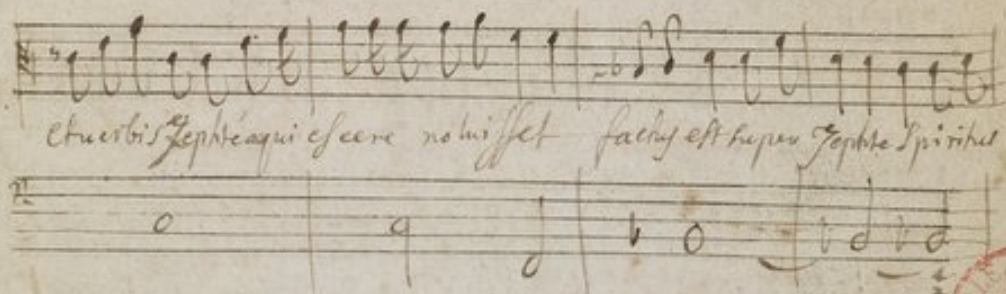 et uerbis Jephte aqui escere noluisset factus est super Jephte Spiritus